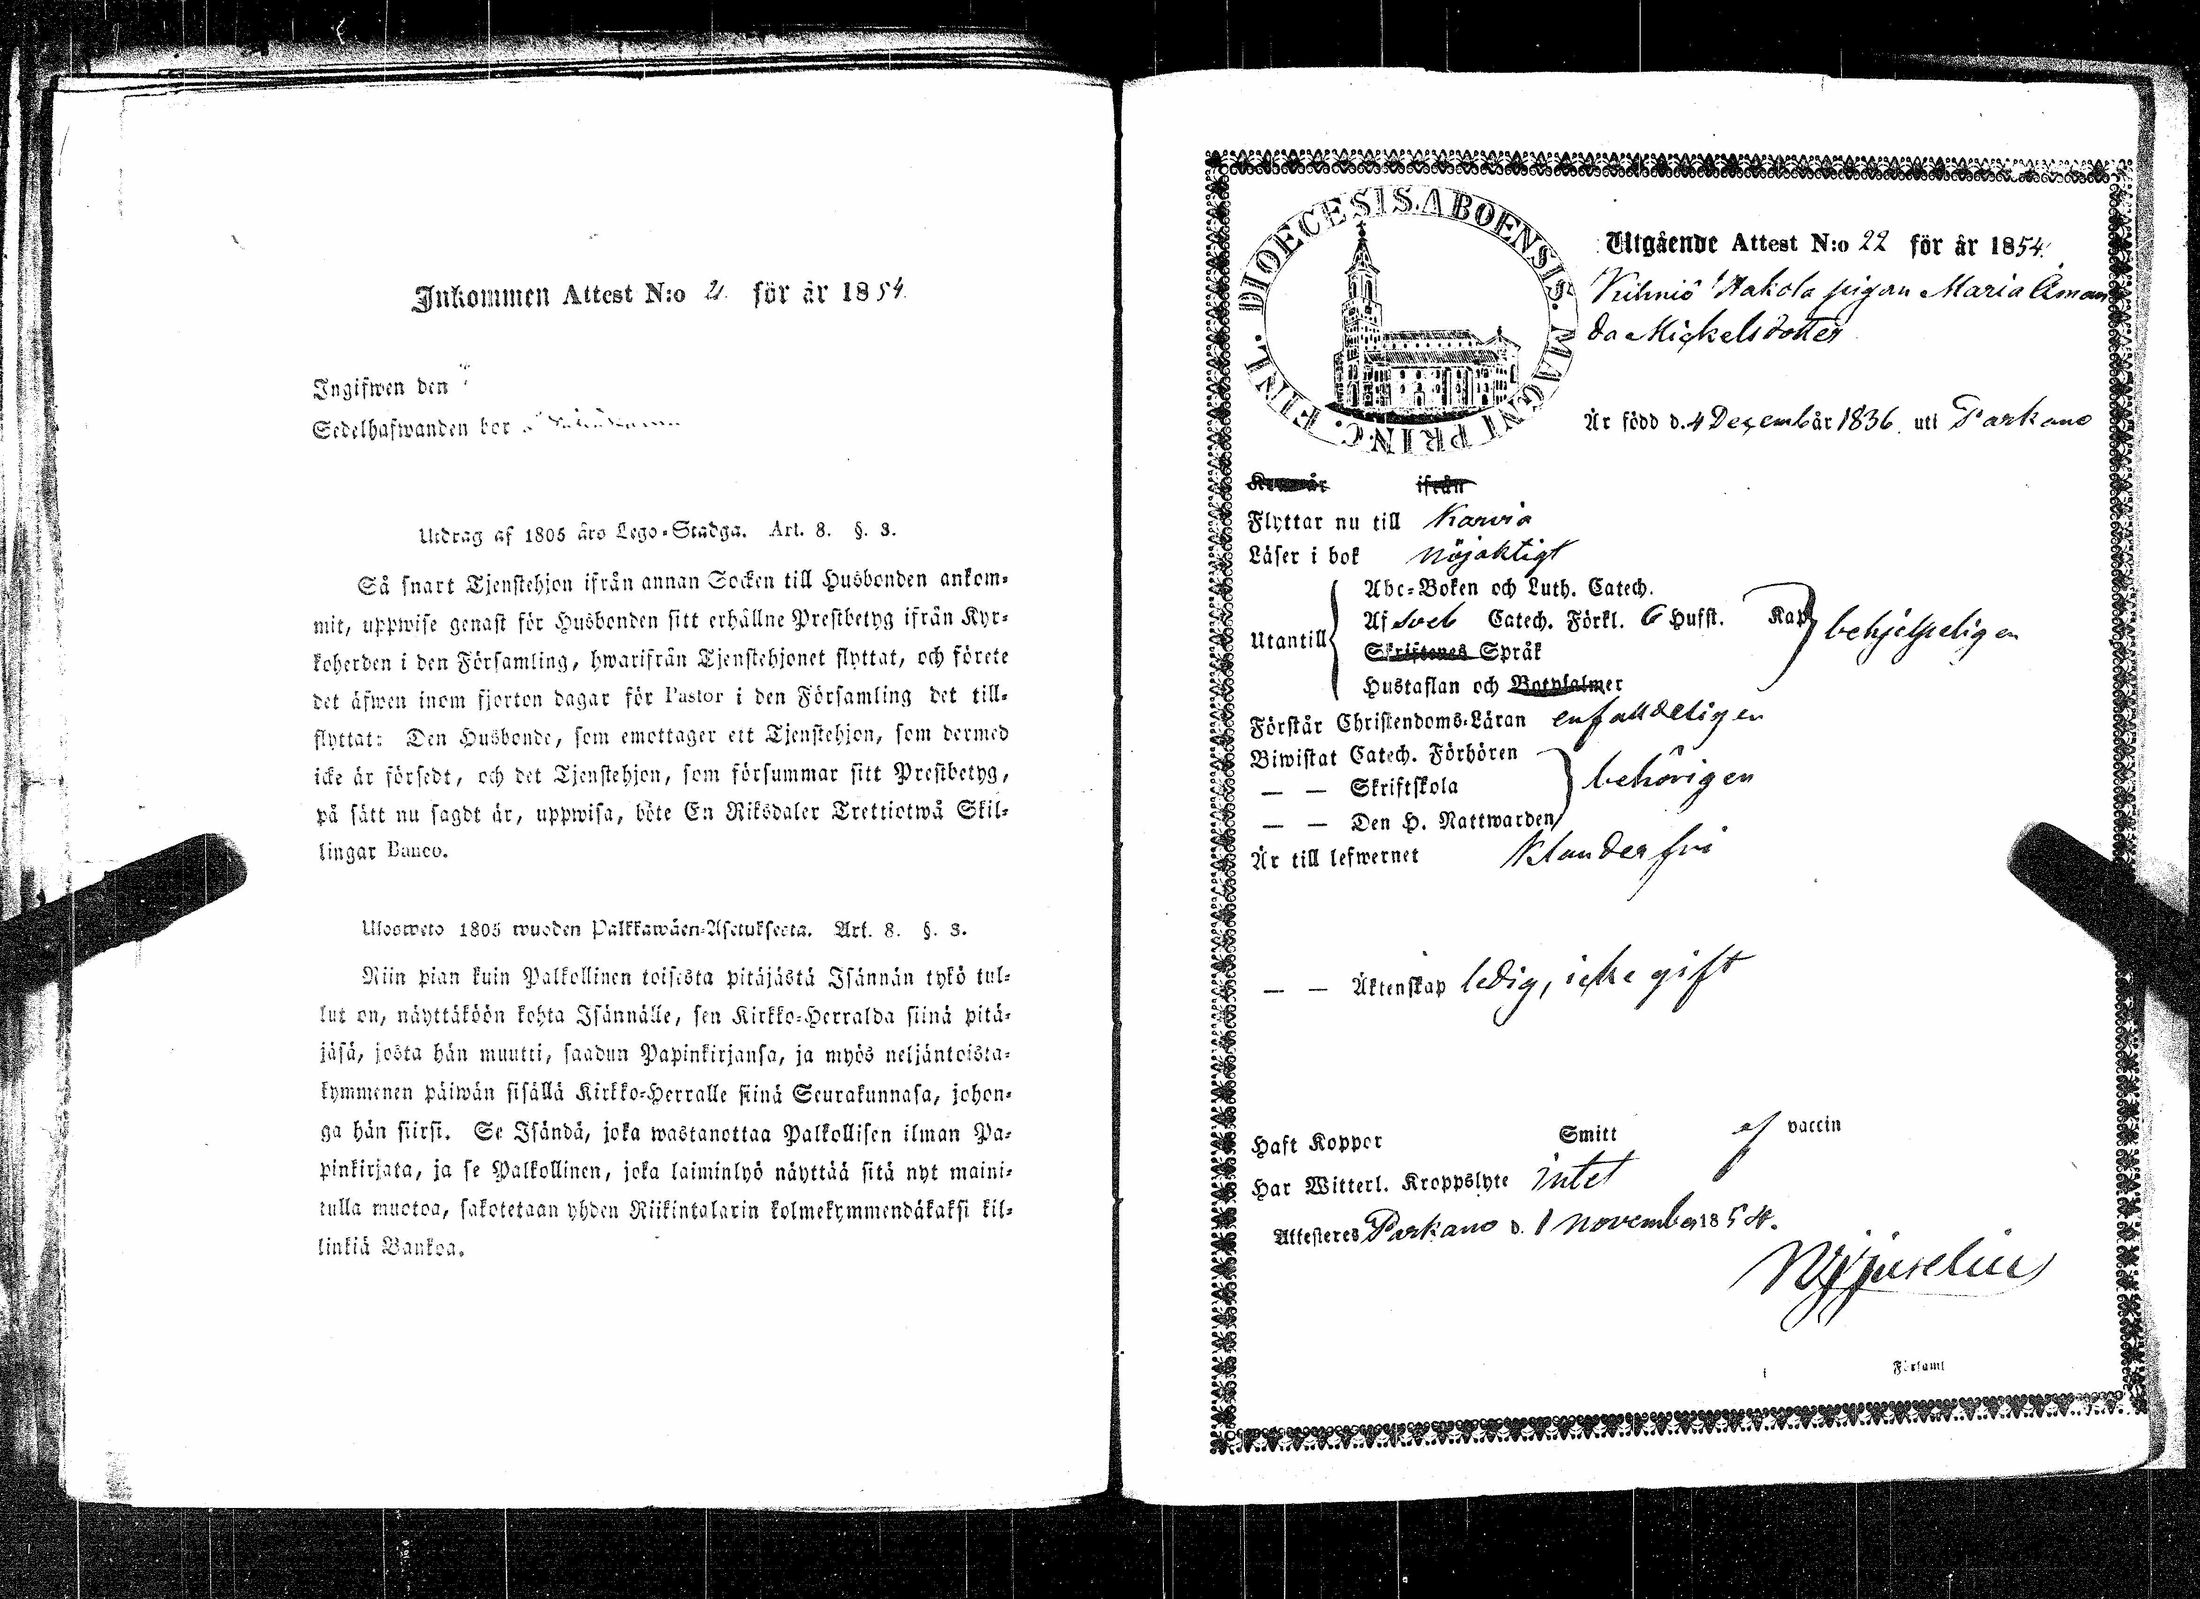 Inkommen Attest N:o 2. för år 1854.
Ingifwen den
Sedelhafwanden bor
Utdrag af 1805 års Lego-Stadga. Art. 8. §. 3.
Så snart Tjenstehjon ifrån annan Socken till Husbonden ankom-
mit, uppwise genast för Husbonden sitt erhållne Prestbetyg ifrån Kyr-
koherden i den Församling, hwarifrån Tjenstehjonet flyttat, och förete
det äfwen inom fjorton dagar för Pastor i den Församling det till-
flyttat: Den Husbonde, som emottager ett Tjenstehjon, som dermed
icke är försedt, och det Tjenstehjon, som försummar sitt Prestbetyg,
på sätt nu sagdt är, uppwisa, böte En Riksdaler Trettiotwå Skil-
lingar Banco.
Ulosweto 1805 wuoden Palkkawäen-Asetuksesta. Art. 8. §. 3.
Niin pian kuin Palkollinen toisesta pitäjästä Isännän tykö tul-
lut on, näyttäköön kohta Isännälle, sen Kirkko-Herralda siinä pitä-
jäsä, josta hän muutti, saadun Papinkirjansa, ja myös neljäntoista-
kymmenen päiwän sisällä Kirkko-Herralle siinä Seurakunnasa, johon-
ga hän siirsi. Se Isändä, joka wastanottaa Palkollisen ilman Pa-
pinkirjata, ja se Palkollinen, joka laiminlyö näyttää sitä nyt maini-
tulla muotoa, sakotetaan yhden Riikintalarin kolmekymmendäkaksi kil-
linkiä Bankoa.
DIOECESIS. ABOENSIS. MAGNI PRINC. FINL.
Utgående Attest N:o 22 för år 1854.
Kihniö Hakola pigan Maria Aman
da Mickelsdotter
Är född d. 4 Decemb år 1836. uti Parkano
ifrån
Flyttar nu till Karvia
Läser i bok nöjaktigt
Utantill
Abc-Boken och Luth. Catech.
Af Sveb Catech. Förkl. 6 Hufst. Kap
behjelpeligen
Skriftenes Språk
Hustaflan och Botpsalmer
Förstår Christendoms-Läran enfalldeligen
Biwistat Catech. Förhören
— — Skriftskola
behörigen
— — Den H. Nattwarden
Är till lefwernet klanderfri
— — Äktenskap ledig, icke gift
Haft Koppor Smitt af vaccin
Har Witterl. Kroppslyte intet
Attesteres Parkano d. 1 november 1854.
Församl